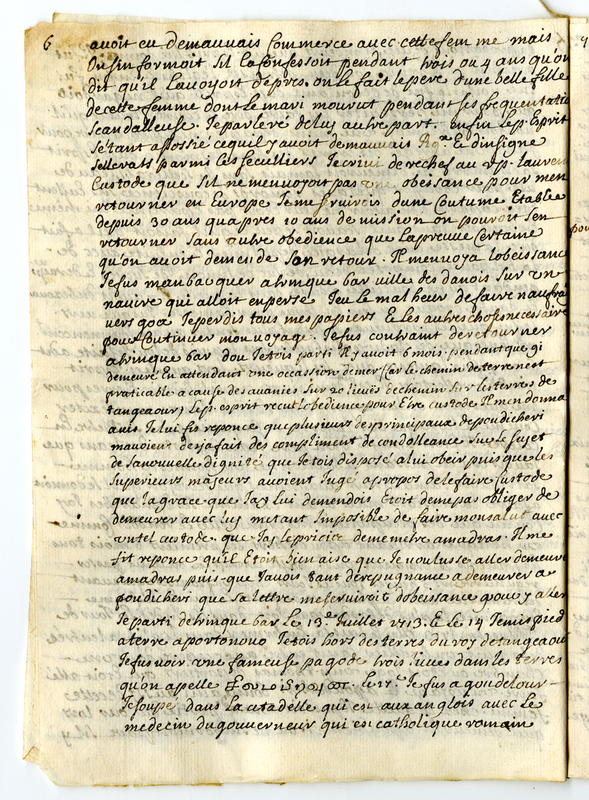 6
avoit eu demauvais Commerce avec cette fem me mais
On sinformoit sil la Confessoit pendant trois ou 4 ans qu'on
dit qu'il Lavoyoit depres. on le fait le pere d'une belle fille
de cette femme dont le mari mourut pendant ses frequentatio
scandalleuse. Je parleré de luy autre part. enfin Le p. Esprit
s'etant assossié ce quil y avoit de mauvais & dinsigne
sellerats parmi les secculiers Jecrivi de rechef au R. p. Lauren
Custode que sil ne menvoyoit pas une obeissance pour men
retourner en Europe Je me servirois dune Coutume Etablie
depuis 30 ans qua pres 10 ans de mission on pouvoit sen
retourner sans autre obedience que la preuve Certaine
qu'on avoit demendé son retour. Il menvoya Lobeissance
Je fus men bacquer a trinque bar ville des danois sur un
navire qui alloit en perse Jeu le mal heur de faire naufra
vers goa Je perdis tous mes papiers & les autres choses necessaire
pour Continuer mon voyage. Je fus contraint de retour ner
a trinque bar dou Jetois parti Il y avoit 6 mois. pendant que Jy
demeuré En attendant une occassion de mer (car le chemin de terre nest
praticable a cause des avanies sur 20 lieuës de chemin sur les terres de
tangeaour) Le p. esprit recut Lobedience pour Etre custode Il men donna
avis Je lui fis reponce que plusieurs des principaux de poudicheri
mavoient desja fait des compliment de condolleance sur le sujet
de sa nouvelle dignité que Je tois disposé a lui obeir puis que les
superieurs majeurs avoient Jugé a propos de le faire Custode
que la grace que Jay Lui demendois Etoit de me pas obliger de
demeurer avec luy metant Imposible de faire mon salut avec
un tel custode. que Jay le priois de me metre a madras. Il me
fit reponce qu'il Etoit bien aise que Je voulusse aller demeure
amadras puis-que Javois tant de repugnance a demeurer a
poudicheri que sa lettre me serviroit dobeissance pour y aller
Je parti de trinque bar Le 13e Juillet 1713. & Le 14 Je mis pied
a terre a portonovo Jetois hors des terres du roy de tangeaour
Je fus voir une fameuse pagode trois lieues dans les terres
qu'on apelle le 17e Je fus a goudelour –
Je soupé dans la citadelle qui est aux anglois avec Le
medecin du gouverneur qui est catholique romain